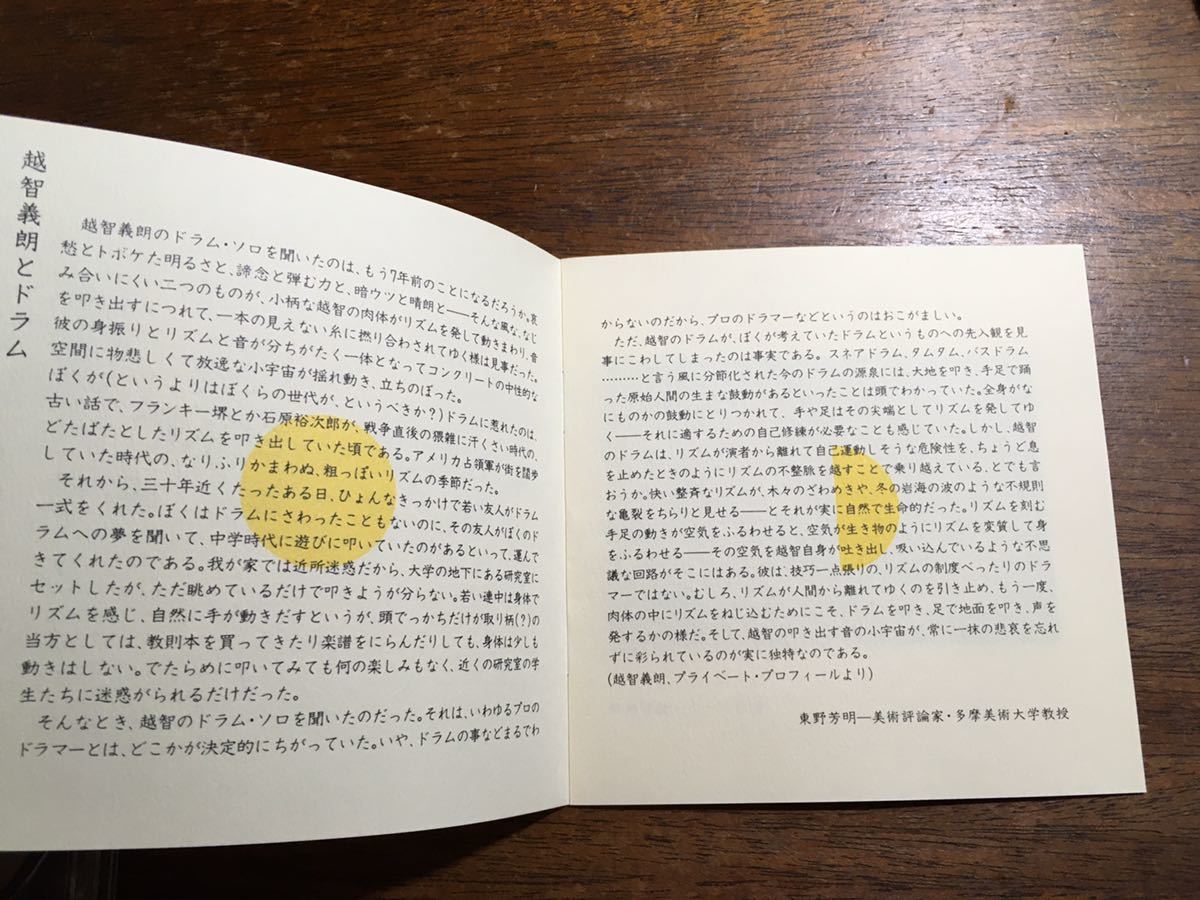 越智義朗とドラム
越智義朗のドラム・ソロを聞いたのは、もう7年前のことになるだろうか。哀
愁とトボケた明るさと、諦念と弾む力と、暗ウツと晴朗と――そんな風な、なじ
み合いにくい二つのものが、小柄な越智の肉体がリズムを発して動きまわり、音
を叩き出すにつれて、一本の見えない糸に撚り合わされてゆく様は見事だった。
彼の身振りとリズムと音が分ちがたく一体となってコンクリートの中性的な
空間に物悲しくて放逸な小宇宙が揺れ動き、立ちのぼった。
ぼくが(というよりはぼくらの世代が、というべきか?)ドラムに惹れたのは、
古い話で、フランキー堺とか石原裕次郎が、戦争直後の猥雑に汗くさい時代の、
どたばたとしたリズムを叩き出していた頃である。アメリカ占領軍が街を闊歩
していた時代の、なりふりかまわぬ、粗っぽいリズムの季節だった。
それから、三十年近くたったある日、ひょんなきっかけで若い友人がドラム
一式をくれた。ぼくはドラムにさわったこともないのに、その友人がぼくのド
ラムへの夢を聞いて、中学時代に遊びに叩いていたのがあるといって、運んで
きてくれたのである。我が家では近所迷惑だから、大学の地下にある研究室に
セットしたが、ただ眺めているだけで叩きようが分らない。若い連中は身体で
リズムを感じ、自然に手が動きだすというが、頭でっかちだけが取り柄(?)の
当方としては、教則本を買ってきたり楽譜をにらんだりしても、身体は少しも
動きはしない。でたらめに叩いてみても何の楽しみもなく、近くの研究室の学
生たちに迷惑がられるだけだった。
そんなとき、越智のドラム・ソロを聞いたのだった。それは、いわゆるプロの
ドラマーとは、どこかが決定的にちがっていた。いや、ドラムの事などまるでわ
からないのだから、プロのドラマーなどというのはおこがましい。
ただ、越智のドラムが、ぼくが考えていたドラムというものへの先入観を見
事にこわしてしまったのは事実である。スネアドラム、タムタム、バスドラム
………と言う風に分節化された今のドラムの源泉には、大地を叩き、手足で踊
った原始人間の生まな鼓動があるといったことは頭でわかっていた。全身がな
にものかの鼓動にとりつかれて、手や足はその尖端としてリズムを発してゆ
く――それに適するための自己修練が必要なことも感じていた。しかし、越智
のドラムは、リズムが演者から離れて自己運動しそうな危険性を、ちょうど息
を止めたときのようにリズムの不整脈を越すことで乗り越えている、とでも言
おうか。快い整斉なリズムが、木々のざわめきや、冬の岩海の波のような不規則
な亀裂をちらりと見せる――とそれが実に自然で生命的だった。リズムを刻む
手足の動きが空気をふるわせると、空気が生き物のようにリズムを変質して身
をふるわせる――その空気を越智自身が吐き出し、吸い込んでいるような不思
議な回路がそこにはある。彼は、技巧一点張りの、リズムの制度べったりのドラ
マーではない。むしろ、リズムが人間から離れてゆくのを引き止め、もう一度、
肉体の中にリズムをねじ込むためにこそ、ドラムを叩き、足で地面を叩き、声を
発するかの様だ。そして、越智の叩き出す音の小宇宙が、常に一抹の悲哀を忘れ
ずに彩られているのが実に独特なのである。
(越智義朗、プライベート・プロフィールより)
東野芳明―美術評論家・多摩美術大学教授